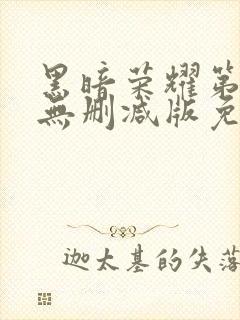 黑暗荣耀第
無删减版免
迦太基的失落